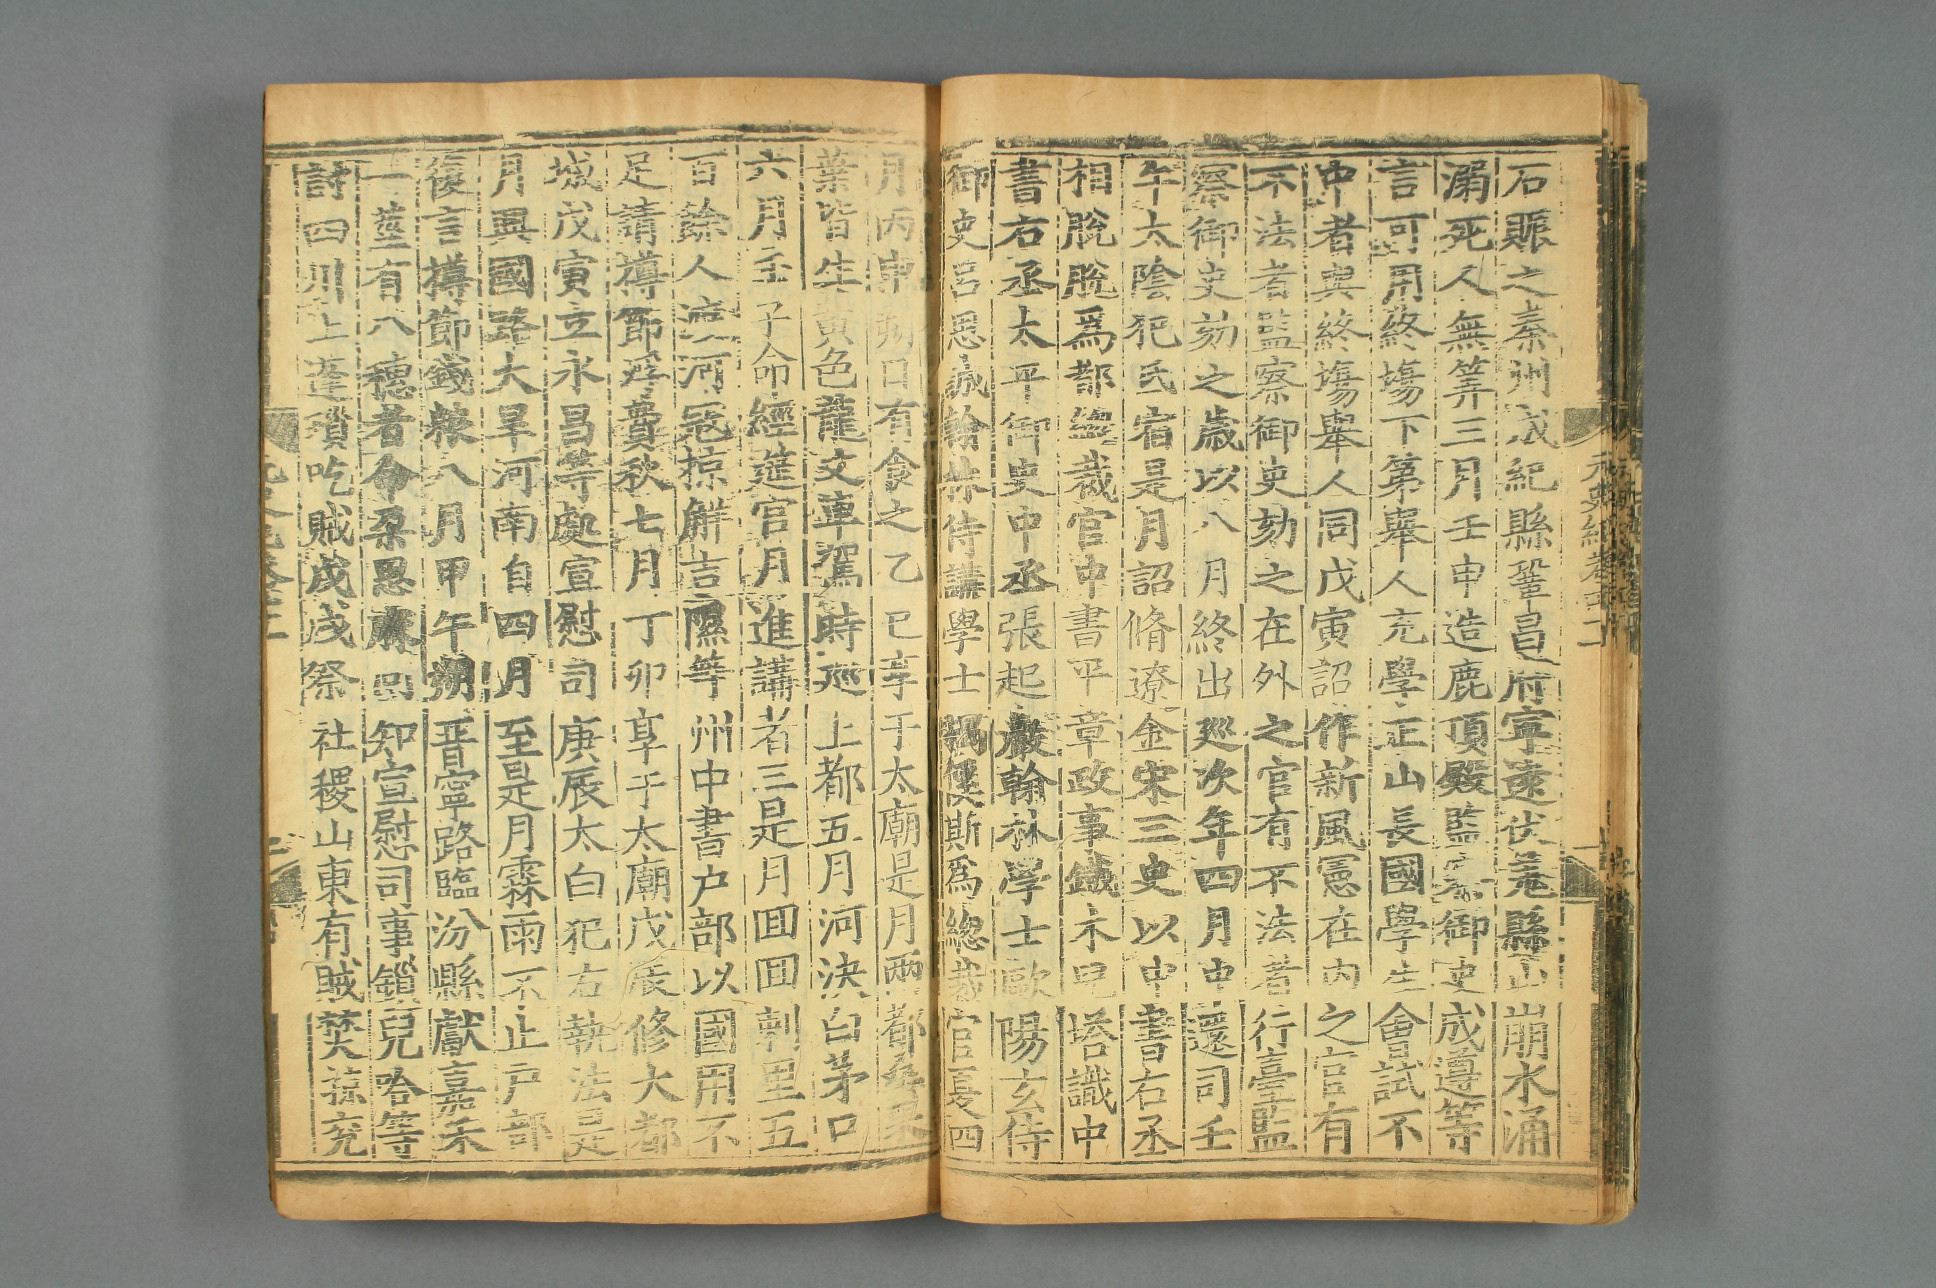 石賑之秦州成紀縣鞏昌府寧遠伏羌縣山崩水涌
溺死人無筭三月壬申造鹿頂殿監察御史成遵等
言可用終塲下第舉人充學正山長國學生會試不
中者與終塲舉人同戊寅詔作新風憲在内之官有
不法者監察御史劾之在外之官有不法者行臺監
察御史劾之歲以八月終出廵次年四月中還司壬
午太陰犯氐宿是月詔脩遼金宋三史以中書右丞
相脫脫爲都緫裁官中書平章政事鐵木兒塔識中
書右丞太平御史中丞張起巖翰林學士歐陽玄侍
御史呂思誠翰林侍講學士揭傒斯爲緫裁官夏四
月丙申朔日有食之乙巳享于太廟是月兩都桑果
葉皆生黃色龍文車駕時廵上都五月河決白茅口
六月壬子命經筵官月進講者三是月囬囬剌里五
百餘人渡河冦掠解吉隰等州中書户部以國用不
足請撙節浮費秋七月丁卯享于太廟戊辰修大都
城戊寅立永昌等處宣慰司庚辰太白犯右執法是
月興國路大旱河南自四月至是月霖雨不止户部
復言撙節錢粮八月甲午朔晋寧路臨汾縣獻嘉禾
一莖有八穗者命朶思麻同知宣慰司事鎖兒哈等
討四川上蓬瑣吃賊戊戌祭社稷山東有賊焚掠兖
元史紀卷